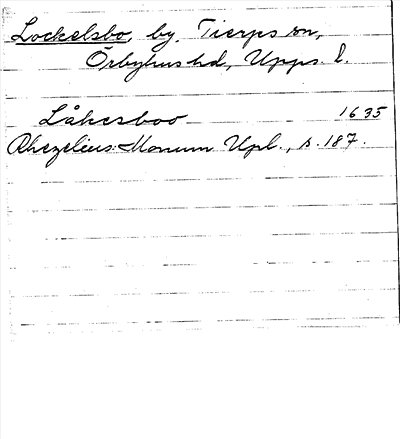 Lockelsbo, by, Tierps sn,
Örbyhus hd, Upps. l.
Låkesboo 1635
Rhezelius: Monum Upl., s. 187.